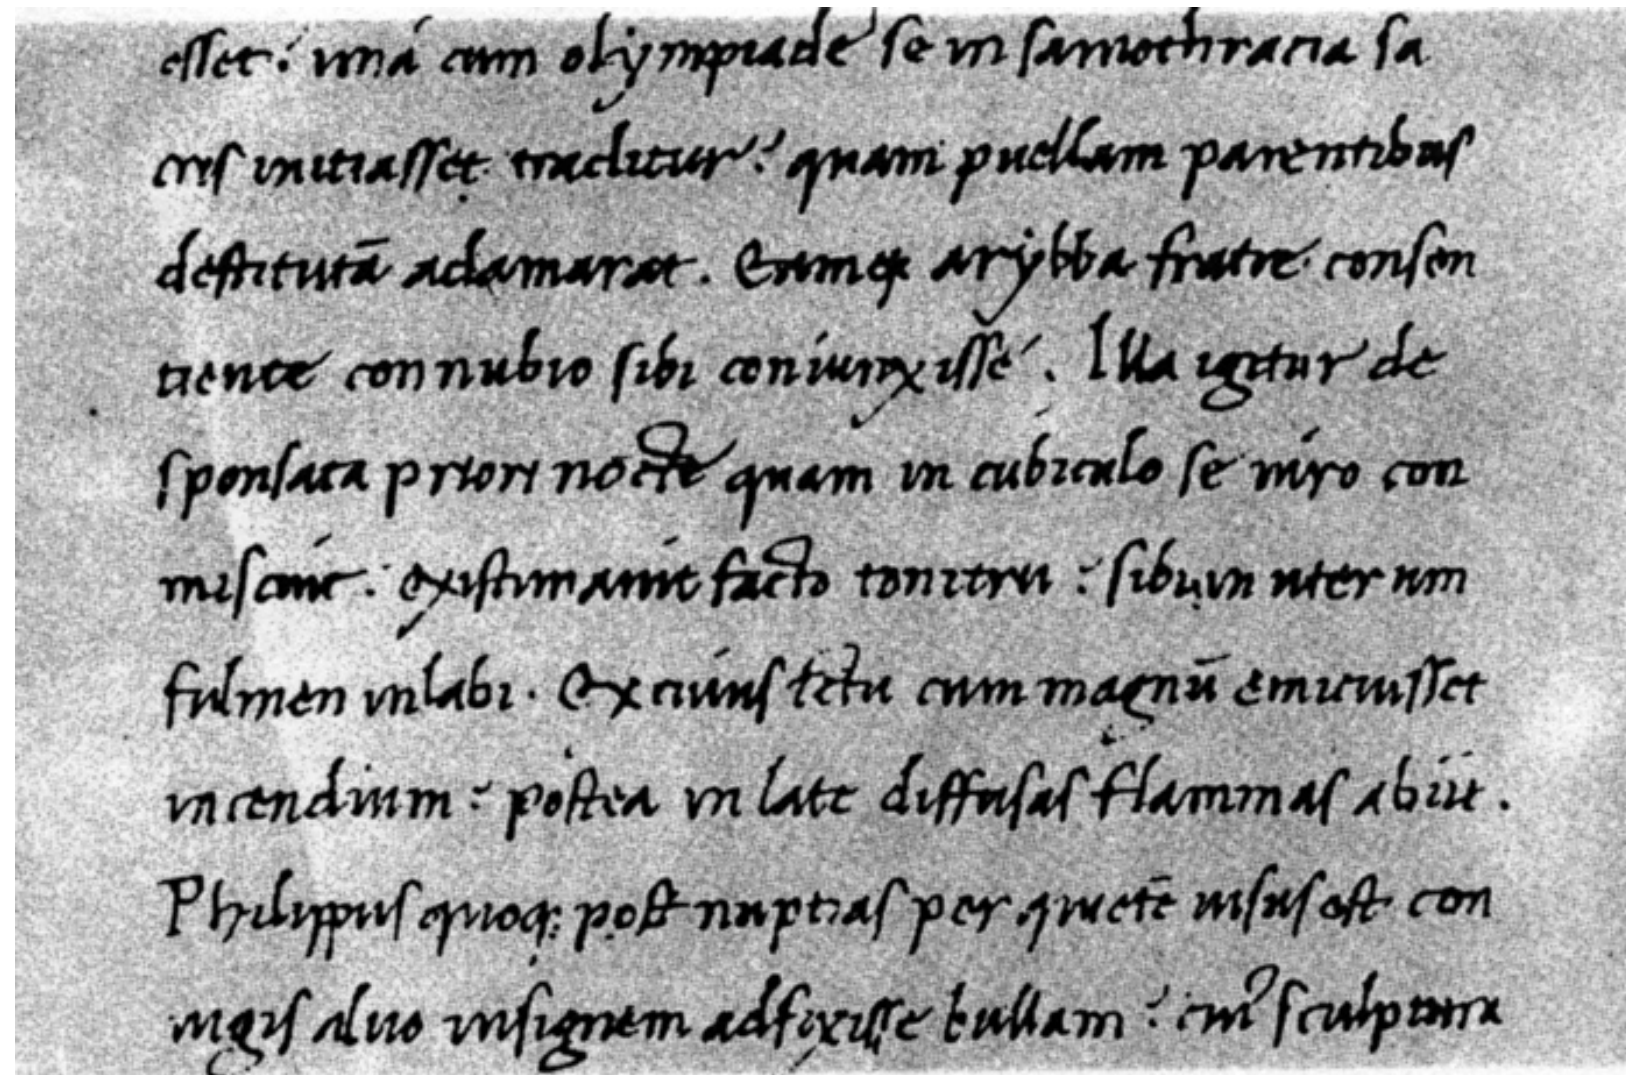 esset: uná cum olympiade se in samothracia sa
cris initiasset traditur: quam puellam parentibus
destitutā adamarat. Eamq; arybba fratre consen
tiente connubio sibi coniunxisse. Illa igitur de
sponsata priori nocte quam in cubiculo se uiro con
miscuit: existimauit facto tonitru: sibi in uterum
fulmen inlabi. Ex cuius ictu cum magnū emicuisset
incendium: postea in late diffusas flammas abiit.
Philippus quoq; post nuptias per quietē uisus est con
iugis aluo insignem adfixisse bullam: sculptura